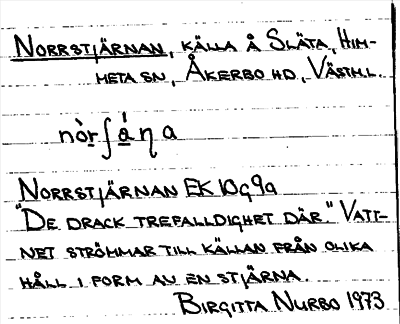 NORRSTJÄRNAN, KÄLLA Å SLÄTA, HIM-
META SN, ÅKERBO HD, VÄSTM.L.
nòrʃána
NORRSTJÄRNAN EK 10g9a
"DE DRACK TREFALLDIGHET DÄR." VATT-
NET STRÖMMAR TILL KÄLLAN FRÅN OLIKA
HÅLL I FORM AV EN STJÄRNA.
BIRGITTA NURBO 1973